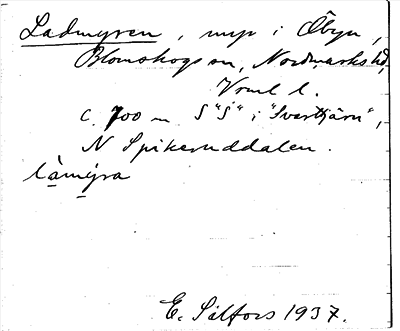 Ladmyren, myr i Åbyn,
Blomskogs sn, Nordmarks hd,
Vrml l.
c. 700 m S "S" i "Svarttjärn",
N Spikeruddalen.
là̱mý̱ra
E. Sälfors 1937.